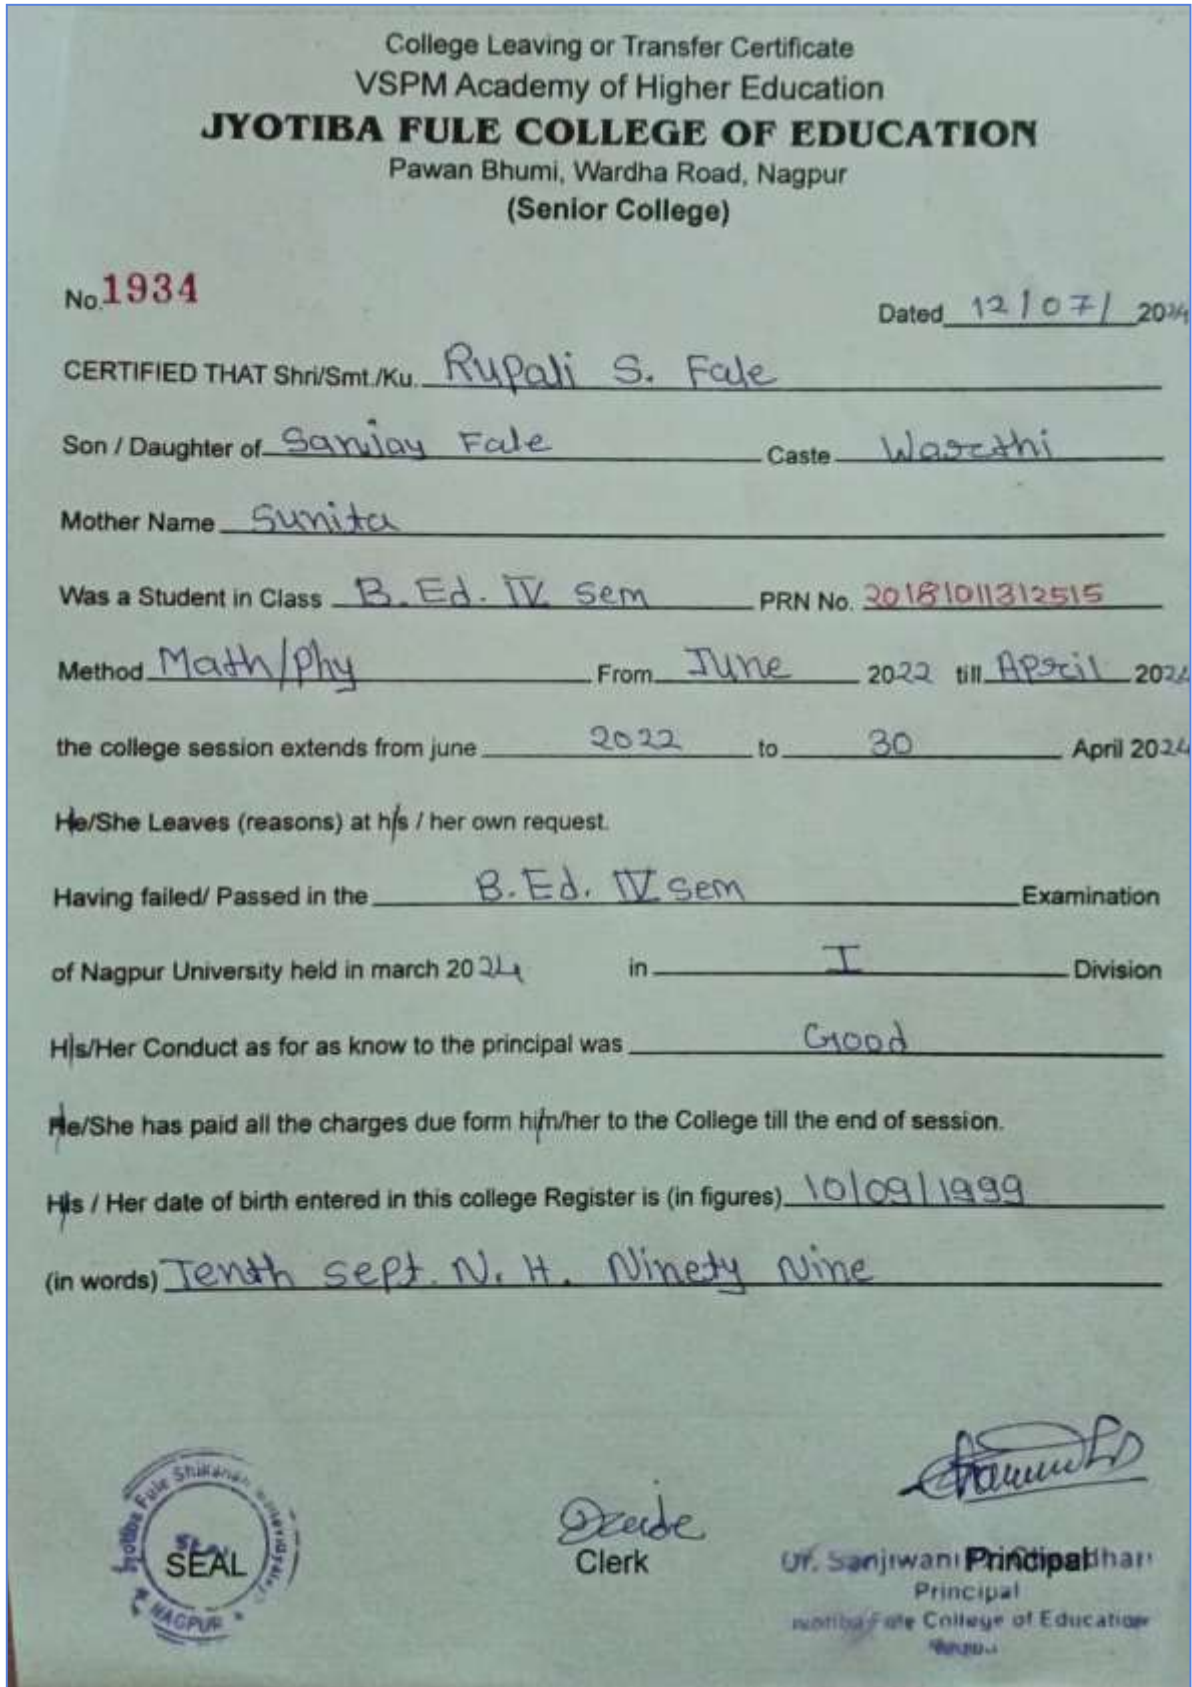 College Leaving or Transfer Certificate
VSPM Academy of Higher Education
JYOTIBA FULE COLLEGE OF EDUCATION
Pawan Bhumi, Wardha Road, Nagpur
(Senior College)
No. 1934
Dated 12/07/2024
CERTIFIED THAT Shri/Smt./Ku. Rupali S. Fale
Son / Daughter of Sanjay Fale Caste Warthi
Mother Name Sunita
Was a Student in Class B.Ed. IV Sem PRN No. 2018101131 2515
Method Math/Phy From June 2022 till April 2024
the college session extends from june 2022 to 30 April 2024
He/She Leaves (reasons) at his / her own request.
Having failed/ Passed in the B.Ed. IV Sem Examination
of Nagpur University held in march 2024 in I Division
His/Her Conduct as for as know to the principal was Good
He/She has paid all the charges due form him/her to the College till the end of session.
His / Her date of birth entered in this college Register is (in figures) 10/09/1999
(in words) Tenth Sept. N. H. Ninety Nine
Jyotiba Fule
NAGPUR
SEAL
Clerk
Principal
Dr. Sanjiwani
Principal
College of Education